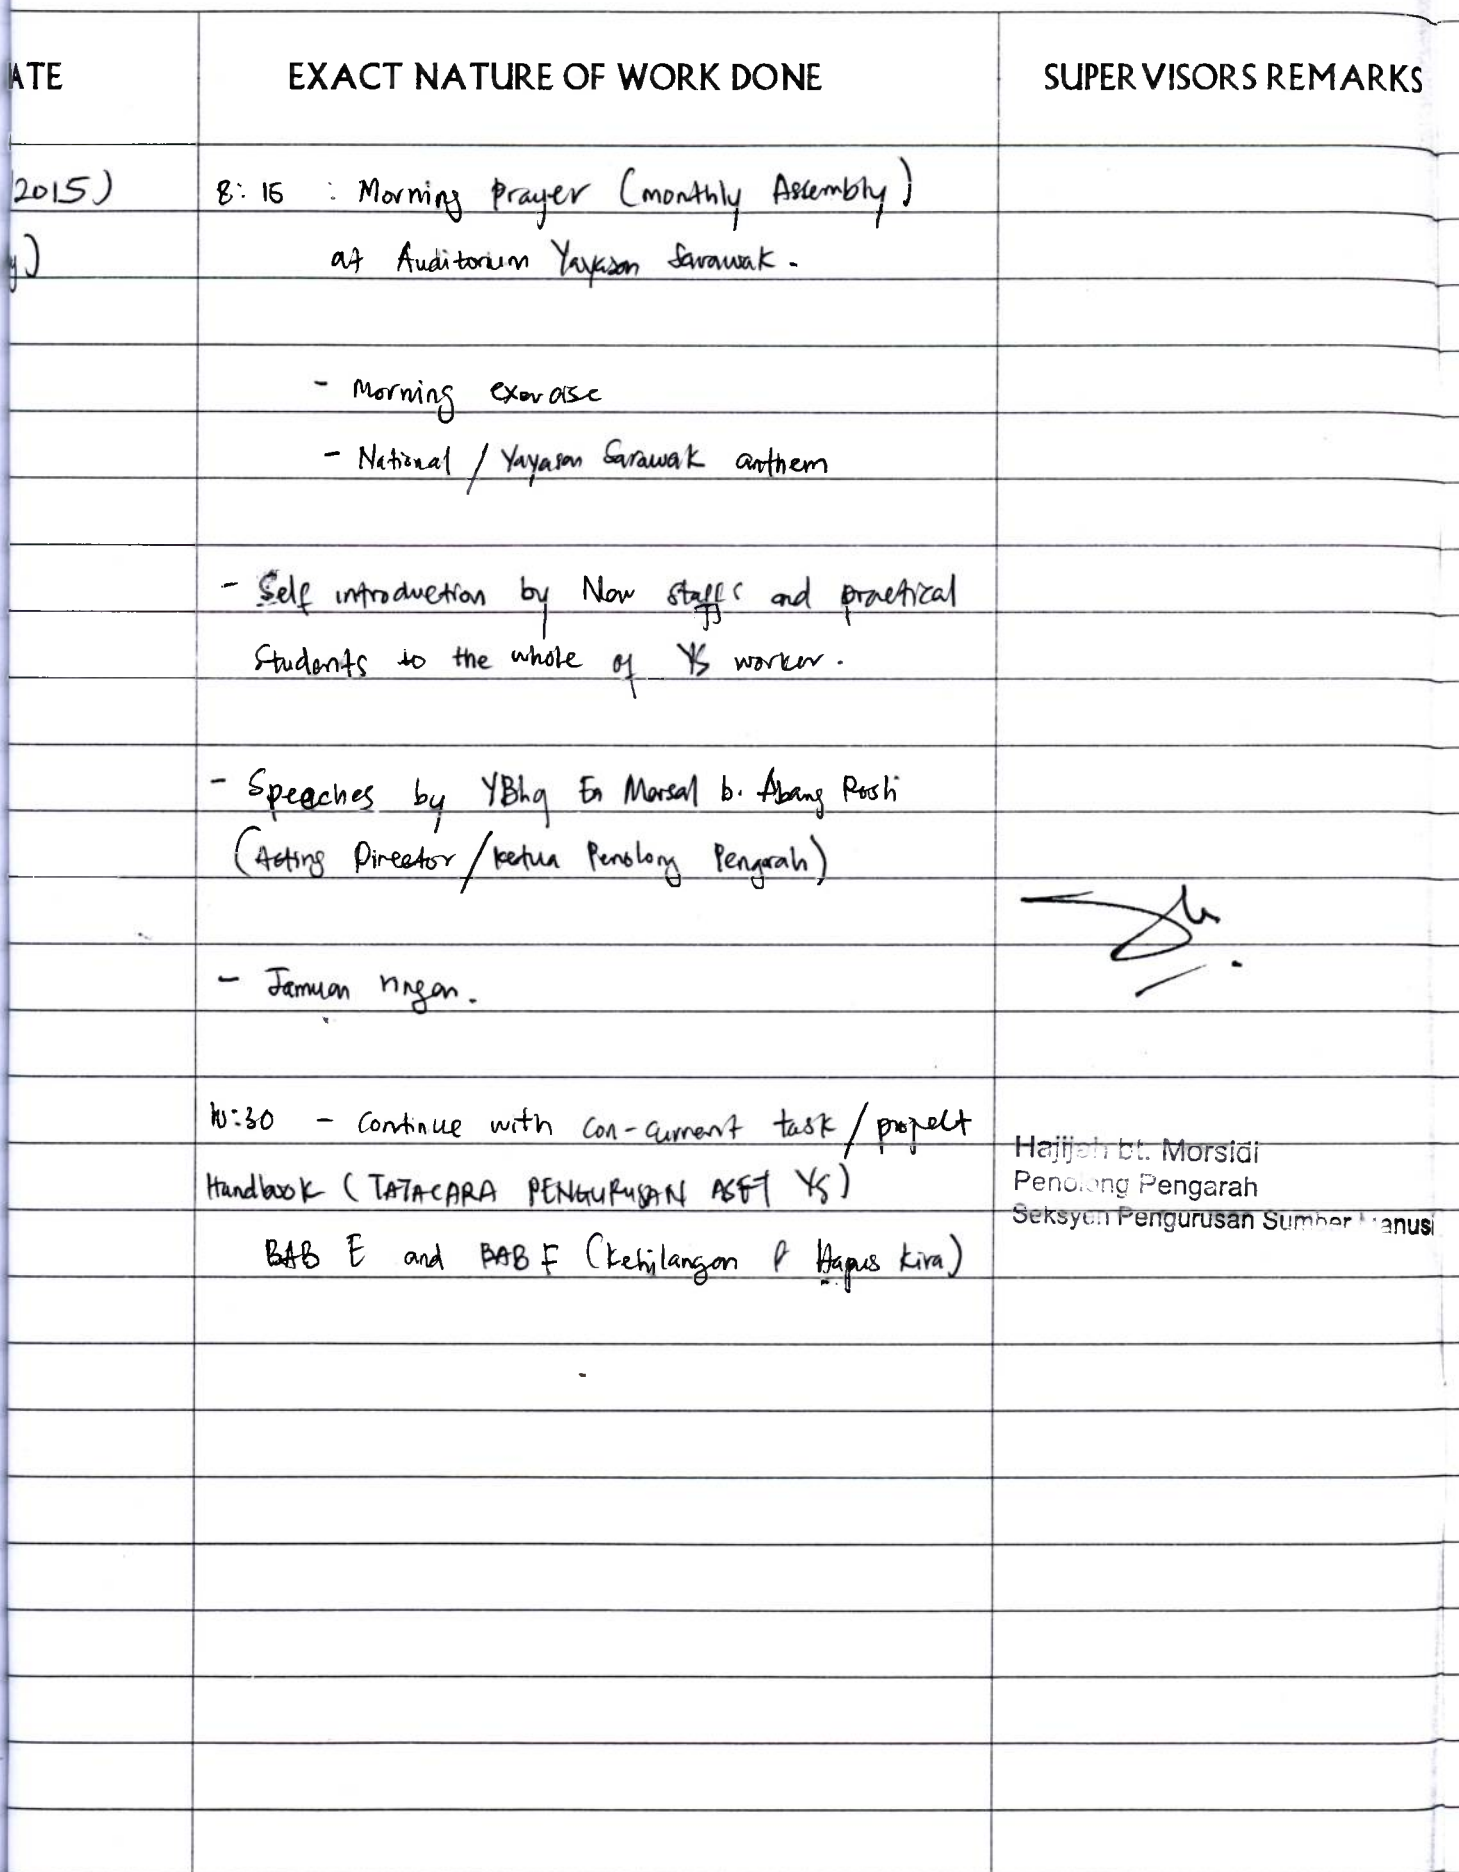 ATE EXACT NATURE OF WORK DONE SUPERVISORS REMARKS
2015) 8:15 : Morning Prayer (monthly Assembly)
y) at Auditorium Yayasan Sarawak.
- Morning exercise
- National / Yayasan Sarawak anthem
- Self introduction by New staffs and practical
Students to the whole of YS worker.
- Speeches by YBhg En Morsal b. Abang Rosli
(Acting Director/Ketua Penolong Pengarah)
- Jamuan ringan.
10:30 - Continue with con-current task / project
Handbook (TATACARA PENGURUSAN ASET YS)
BAB E and BAB F (Kehilangan & Hapus Kira)
Hajijah bt. Morsidi
Penolong Pengarah
Seksyen Pengurusan Sumber Manusi